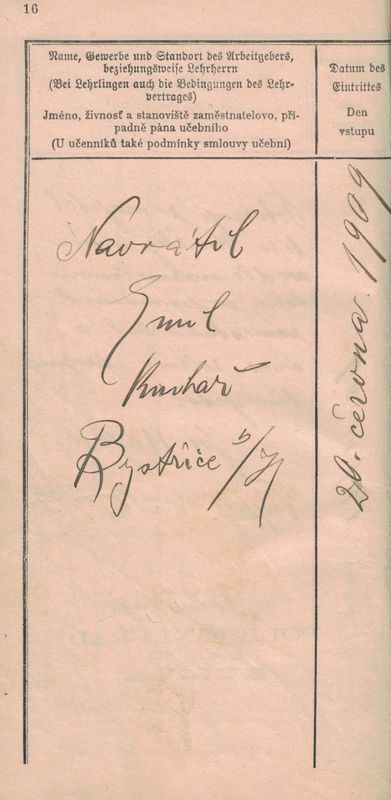 16
Name, Gewerbe und Standort des Arbeitgebers,
beziehungsweise Lehrherrn
(Bei Lehrlingen auch die Bedingungen des Lehr-
vertrages)
Jméno, živnosť a stanoviště zaměstnatelovo, pří-
padně pána učebního
(U učenníků také podmínky smlouvy učební)
Datum des
Eintrittes
Den
vstupu
Navrátil
Emil
Kuchař
Bystřice p/H
20. června 1909